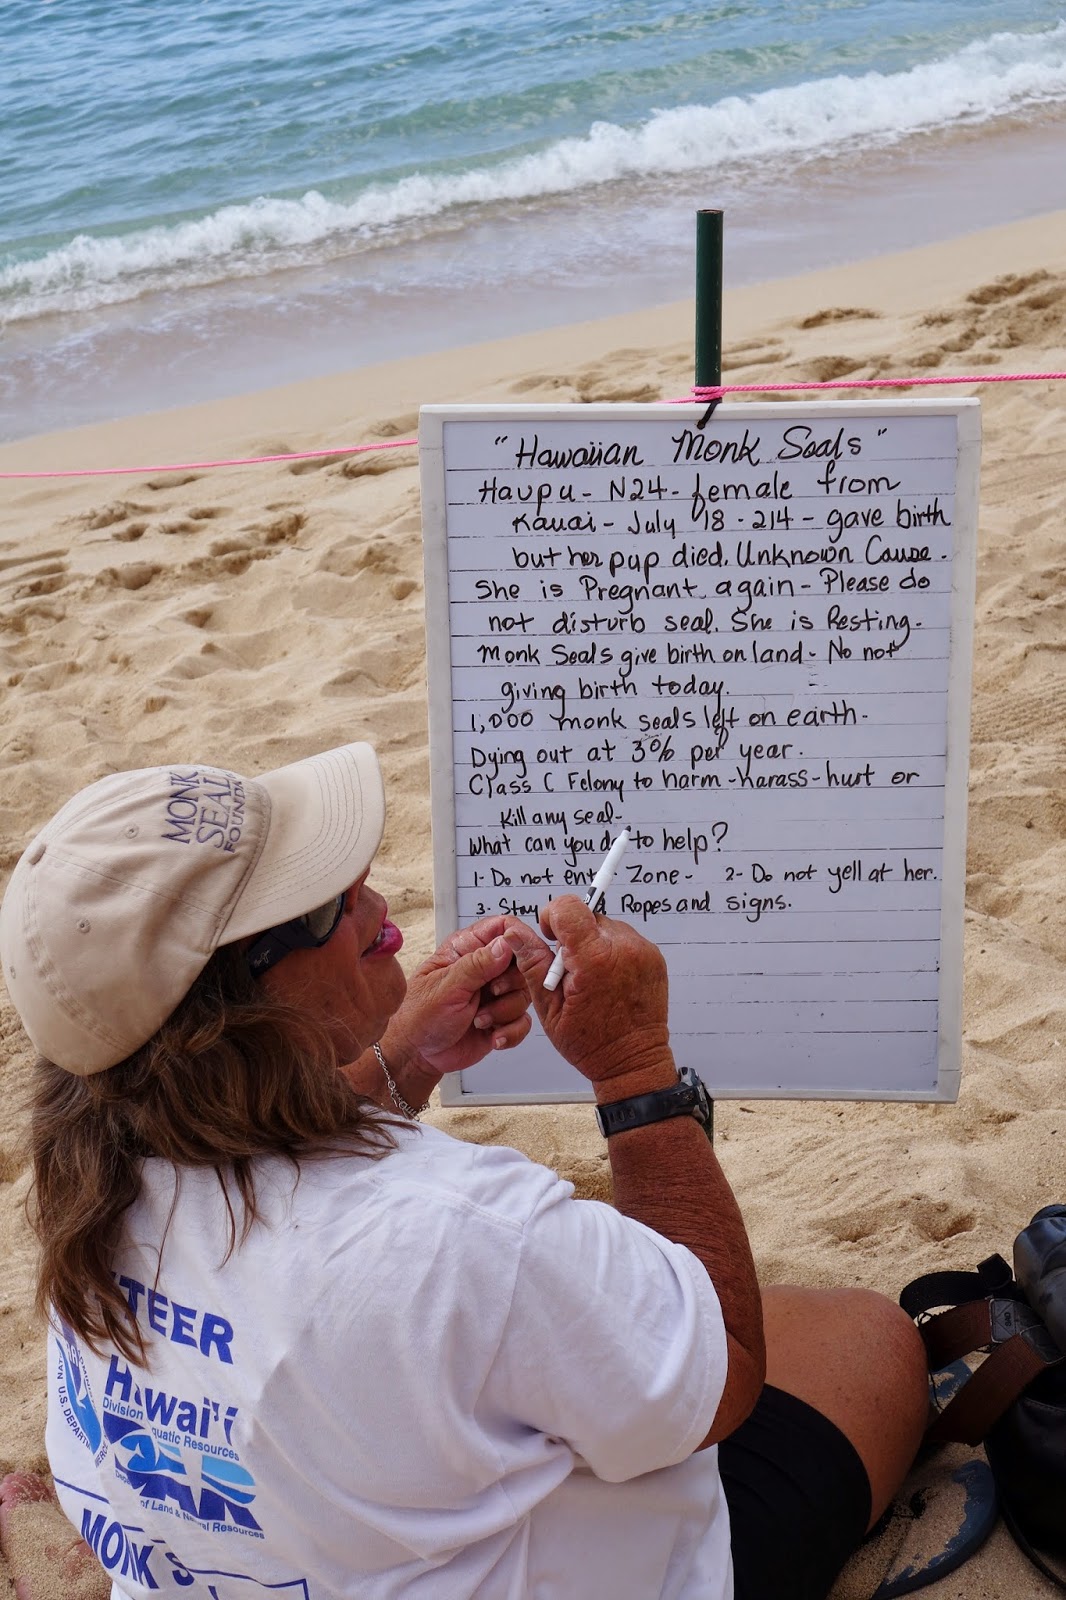 "Hawaiian Monk Seals"
Haupu - N24 - female from
Kauai - July 18 - 214 - gave birth
but her pup died. Unknown Cause.
She is Pregnant again - Please do
not disturb seal. She is Resting.
Monk Seals give birth on land - No not
giving birth today.
1,000 monk seals left on earth.
Dying out at 3% per year.
Class C Felony to harm - harass - hurt or
Kill any seal -
What can you do to help?
1- Do not Zone - 2- Do not yell at her.
3- Stay Ropes and signs.
MONK
SEAL
FOUND
TEER
Hawai'i
Division Aquatic Resources
DAR
of Land & Natural Resources
U.S. DEPARTM
MONK S